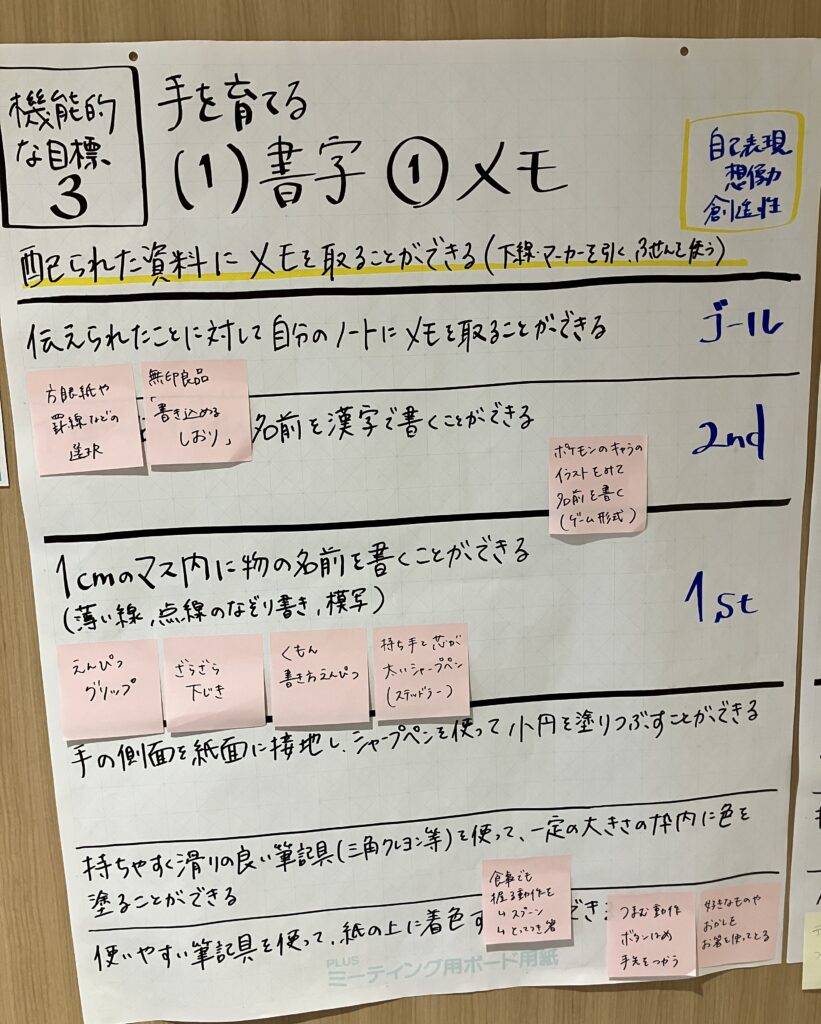 機能的
な目標
3
手を育てる
(1)書字 ①メモ
自己表現
想像力
創造性
配られた資料にメモを取ることができる(下線・マーカーを引く、ふせんを使う)
伝えられたことに対して自分のノートにメモを取ることができる
ゴール
方眼紙や
罫線などの
選択
無印良品
「書き込める
しおり」
名前を漢字で書くことができる
2nd
ポケモンのキャラの
イラストをみて
名前を書く
(ゲーム形式)
1cmのマス内に物の名前を書くことができる
(薄い線、点線のなぞり書き、模写)
1st
えんぴつ
グリップ
ざらざら
下じき
くもん
書き方えんぴつ
持ち手と芯が
太いシャープペン
(ステッドラー)
手の側面を紙面に接地し、シャープペンを使って小円を塗りつぶすことができる
持ちやすく滑りの良い筆記具(三角クレヨン等)を使って、一定の大きさの枠内に色を
塗ることができる
食事でも
握る動作を
↳スプーン
↳とってつき箸
使いやすい筆記具を使って、紙の上に着色す
でき
つまむ動作
ボタンはめ
手先をつかう
好きなものや
おかしを
お箸を使ってとる
PLUS
ミーティング用ボード用紙